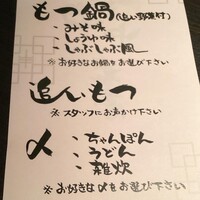 もつ鍋(追い野菜付)
・みそ味
・しょうゆ味
・しゃぶしゃぶ風
※お好きなお鍋をお選び下さい
追んもつ
※スタッフにお声かけ下さい
〆・ちゃんぽん
・うどん
・雑炊
※お好きな〆をお選び下さい